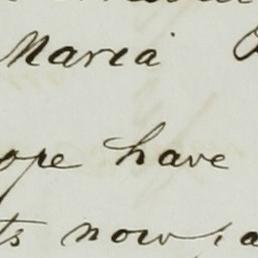 Maria
ope have
ts now, a